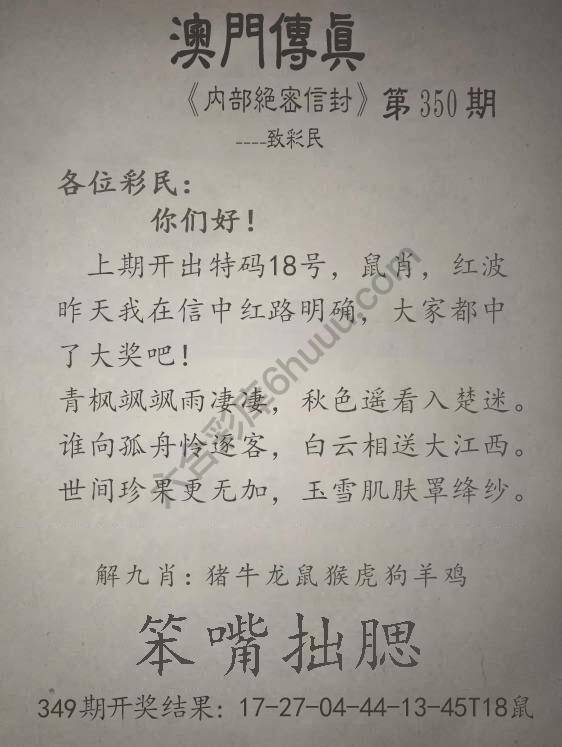 澳門傳眞
《内部絕密信封》第350期
----致彩民
各位彩民：
你们好！
上期开出特码18号，鼠肖，红波
昨天我在信中红路明确，大家都中
了大奖吧！
青枫飒飒雨凄凄，秋色遥看入楚迷。
谁向孤舟怜逐客，白云相送大江西。
世间珍果更无加，玉雪肌肤罩绛纱。
解九肖：猪牛龙鼠猴虎狗羊鸡
笨嘴拙腮
349期开奖结果：17-27-04-44-13-45T18鼠
六合彩库6huuu.com